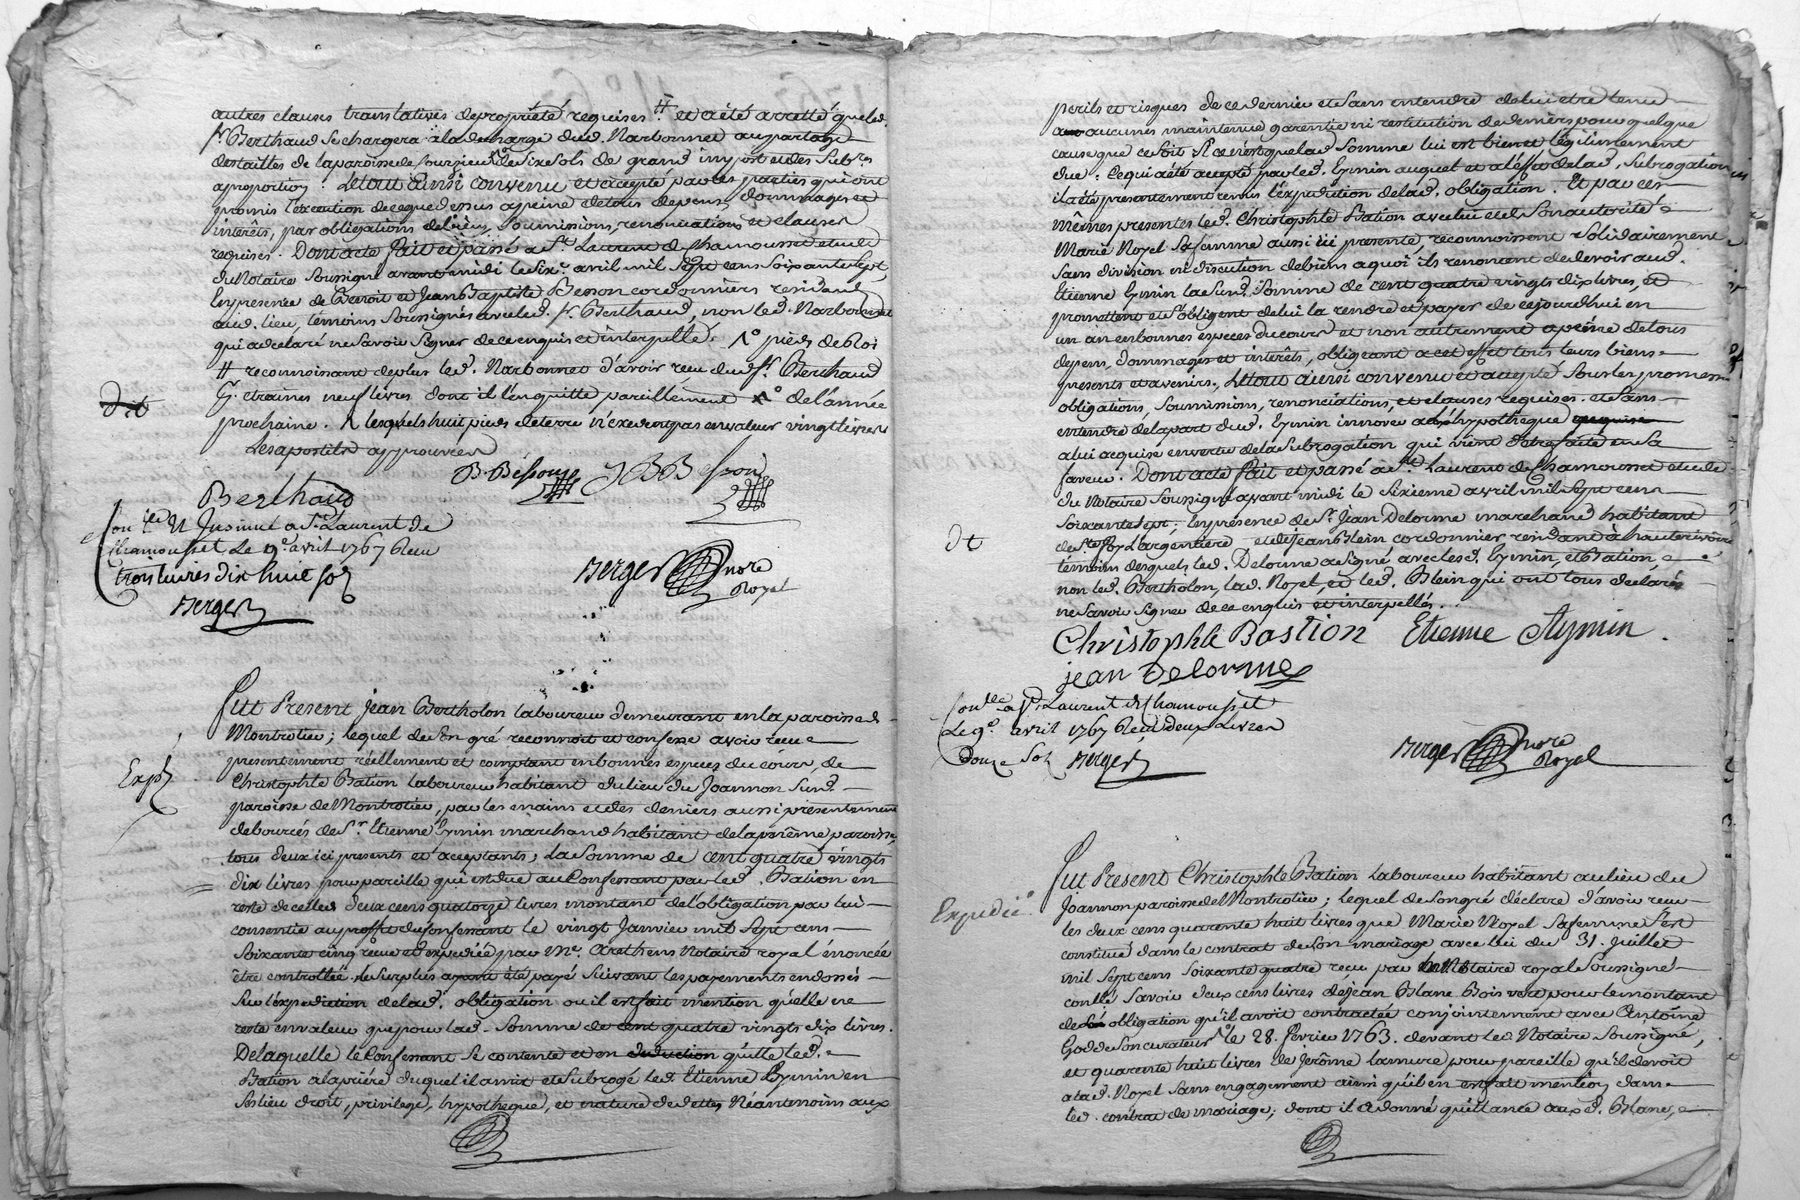 autres clauses translatives de propriété requises # et a été arretté que led.
sr. Berthaud se chargera a la decharge dud. Narbonnet au partage
des tailles de la paroisse de Souzieu de six sols de grand import et des subres
a proportion. Le tout ainsi convenu et accepté par les parties qui ont
promis l'execution de ce que dessus a peine de tous depens, dommages et
interêts, par obligations de biens, soumissions, renonciations et clauses
requises. Dont acte fait et passé a St. Laurent de Chamousset etude
du Notaire soussigné avant midi le six.e avril mil sept cens soixante sept,
en presence de Benoit et Jean Baptiste Besson cordonniers residant
aud. lieu, témoins soussignés avec led. sr. Berthaud, non led. Narbonnet
qui a declaré ne savoir signer de ce enquis et interpellé. pieds de Roi
# reconnoissant de plus led. Narbonnet d'avoir reçu dud. sr. Berthaud
etraines neuf livres dont il l'en quitte pareillement de l'année
prochaine. lesquels huit pieds de terre n'excedent pas en valeur vingt livres
Les apostilles approuvées
dit
B. Bessons JB Besson
Berthaud
Con.lé et Insinué a St. Laurent de
Chamousset le 9.e avril 1767 Reçu
trois livres dix huit sols
Berger
Berger nore Royal
Fut Present Jean Bertholon laboureur demeurant en la paroisse de
Montrotier; lequel de son gré reconnoit et confesse avoir reçu
Exp.
presentement réellement et comptant en bonnes especes du cours, de
Christophle Bation laboureur habitant du lieu du Joannon susd.
paroisse de Montrotier, par les mains et des deniers aussi présentement
deboursés de Sr. Etienne Eymin marchand habitant de la même paroisse,
tous deux ici presents et acceptants, la somme de cent quatre vingts
dix livres pour pareille qui est due au Confessant par led. Bation en
reste de celle de deux cens quatorze livres montant de l'obligation par lui
consentie au profit du confessant le vingt Janvier mil sept cens
soixante cinq reçue et expediée par Me. Arethens Notaire royal énoncée
être controllée, le surplus ayant été payé suivant les payements endossés
sur l'expedition de lad. obligation ou il est fait mention qu'elle ne
reste en valeur que pour lad. somme de cent quatre vingts dix livres.
De laquelle le Confessant se contente et en deduction quitte led.
Bation a la priére duquel il a mis et subrogé led. Etienne Eymin en
son lieu droit, privilege, hypotheque, et nature de dettes Néantmoins aux
perils et risques de ce dernier et sans entendre de lui etre tenu
a aucunes maintenue garentie ni restitution de deniers pour quelque
cause que ce soit si ce n'est que lad. somme lui est bien et légitimement
due: ce qui a été accepté par led. Eymin auquel et a l'effet de lad. subrogation
il a été presentement remis l'expedition de lad. obligation. Et par ces
mêmes presentes led. Christophle Bation avec lui et de son autorité
Marie Noyel sa femme aussi ici presente, reconnoissent solidairement
sans division ni discution de biens a quoi ils renoncent de devoir aud.
Etienne Eymin lasusd. somme de cent quatre vingts dix livres, et
promettent et s'obligent de lui la rendre et payer de ce jourdhui en
un an en bonnes especes du cours et non autrement a peine de tous
depens, dommages et interêts, obligeant a cet effet tous leurs biens
presents et avenirs. Le tout ainsi convenu et accepté sous les promesses
obligations, soumissions, renonciations, et clauses requises. et sans
entendre de la part dud. Eymin innover a l'hypotheque acquise
a lui acquise en vertu de la subrogation qui vient d'etre faite en sa
faveur. Dont acte fait et passé a St. Laurent de Chamousset etude
du Notaire soussigné avant midi le sixieme avril mil sept cens
soixante sept; en presence de Sr. Jean Delorme marchand habitant
de Ste. foy l'argentiere et de Jean Blein cordonnier residant à hauterivoire
dt
témoins desquels led. Delorme a signé avec lesd. Eymin, et Bation,
non led. Bertholon, lad. Noyel, et led. Blein qui ont tous declarés
ne savoir signer de ce enquis et interpellés.
Christophle Bastion Etienne Aymin.
jean Delorme
Con.lé a St. Laurent de Chamousset
Le 9.e avril 1767 Reçu deux livres
douze sols Berger
Berger nore Royal
Fut Present Christophle Bation laboureur habitant au lieu du
Joannon paroisse de Montrotier; lequel de son gré déclare d'avoir reçu
Expedié.
les deux cens quarente huit livres que Marie Noyel sa femme s'est
constitué dans le contrat de son mariage avec lui du 31. Juillet
mil sept cens soixante quatre reçu par le Notaire royal soussigné
conllé savoir deux cens livres de jean Blanc Bois vert pour le montant
de obligation qu'il avoit contractée conjointement avec Antoine
God de son curateur le 28. fevrier 1763. devant led. Notaire soussigné,
et quarente huit livres de Jerôme lamure pour pareille qu'il devoit
a lad. Noyel sans engagement ainsi qu'il en est fait mention dans
led. contrat de mariage; dont il a donné quittance auxd. Blanc,